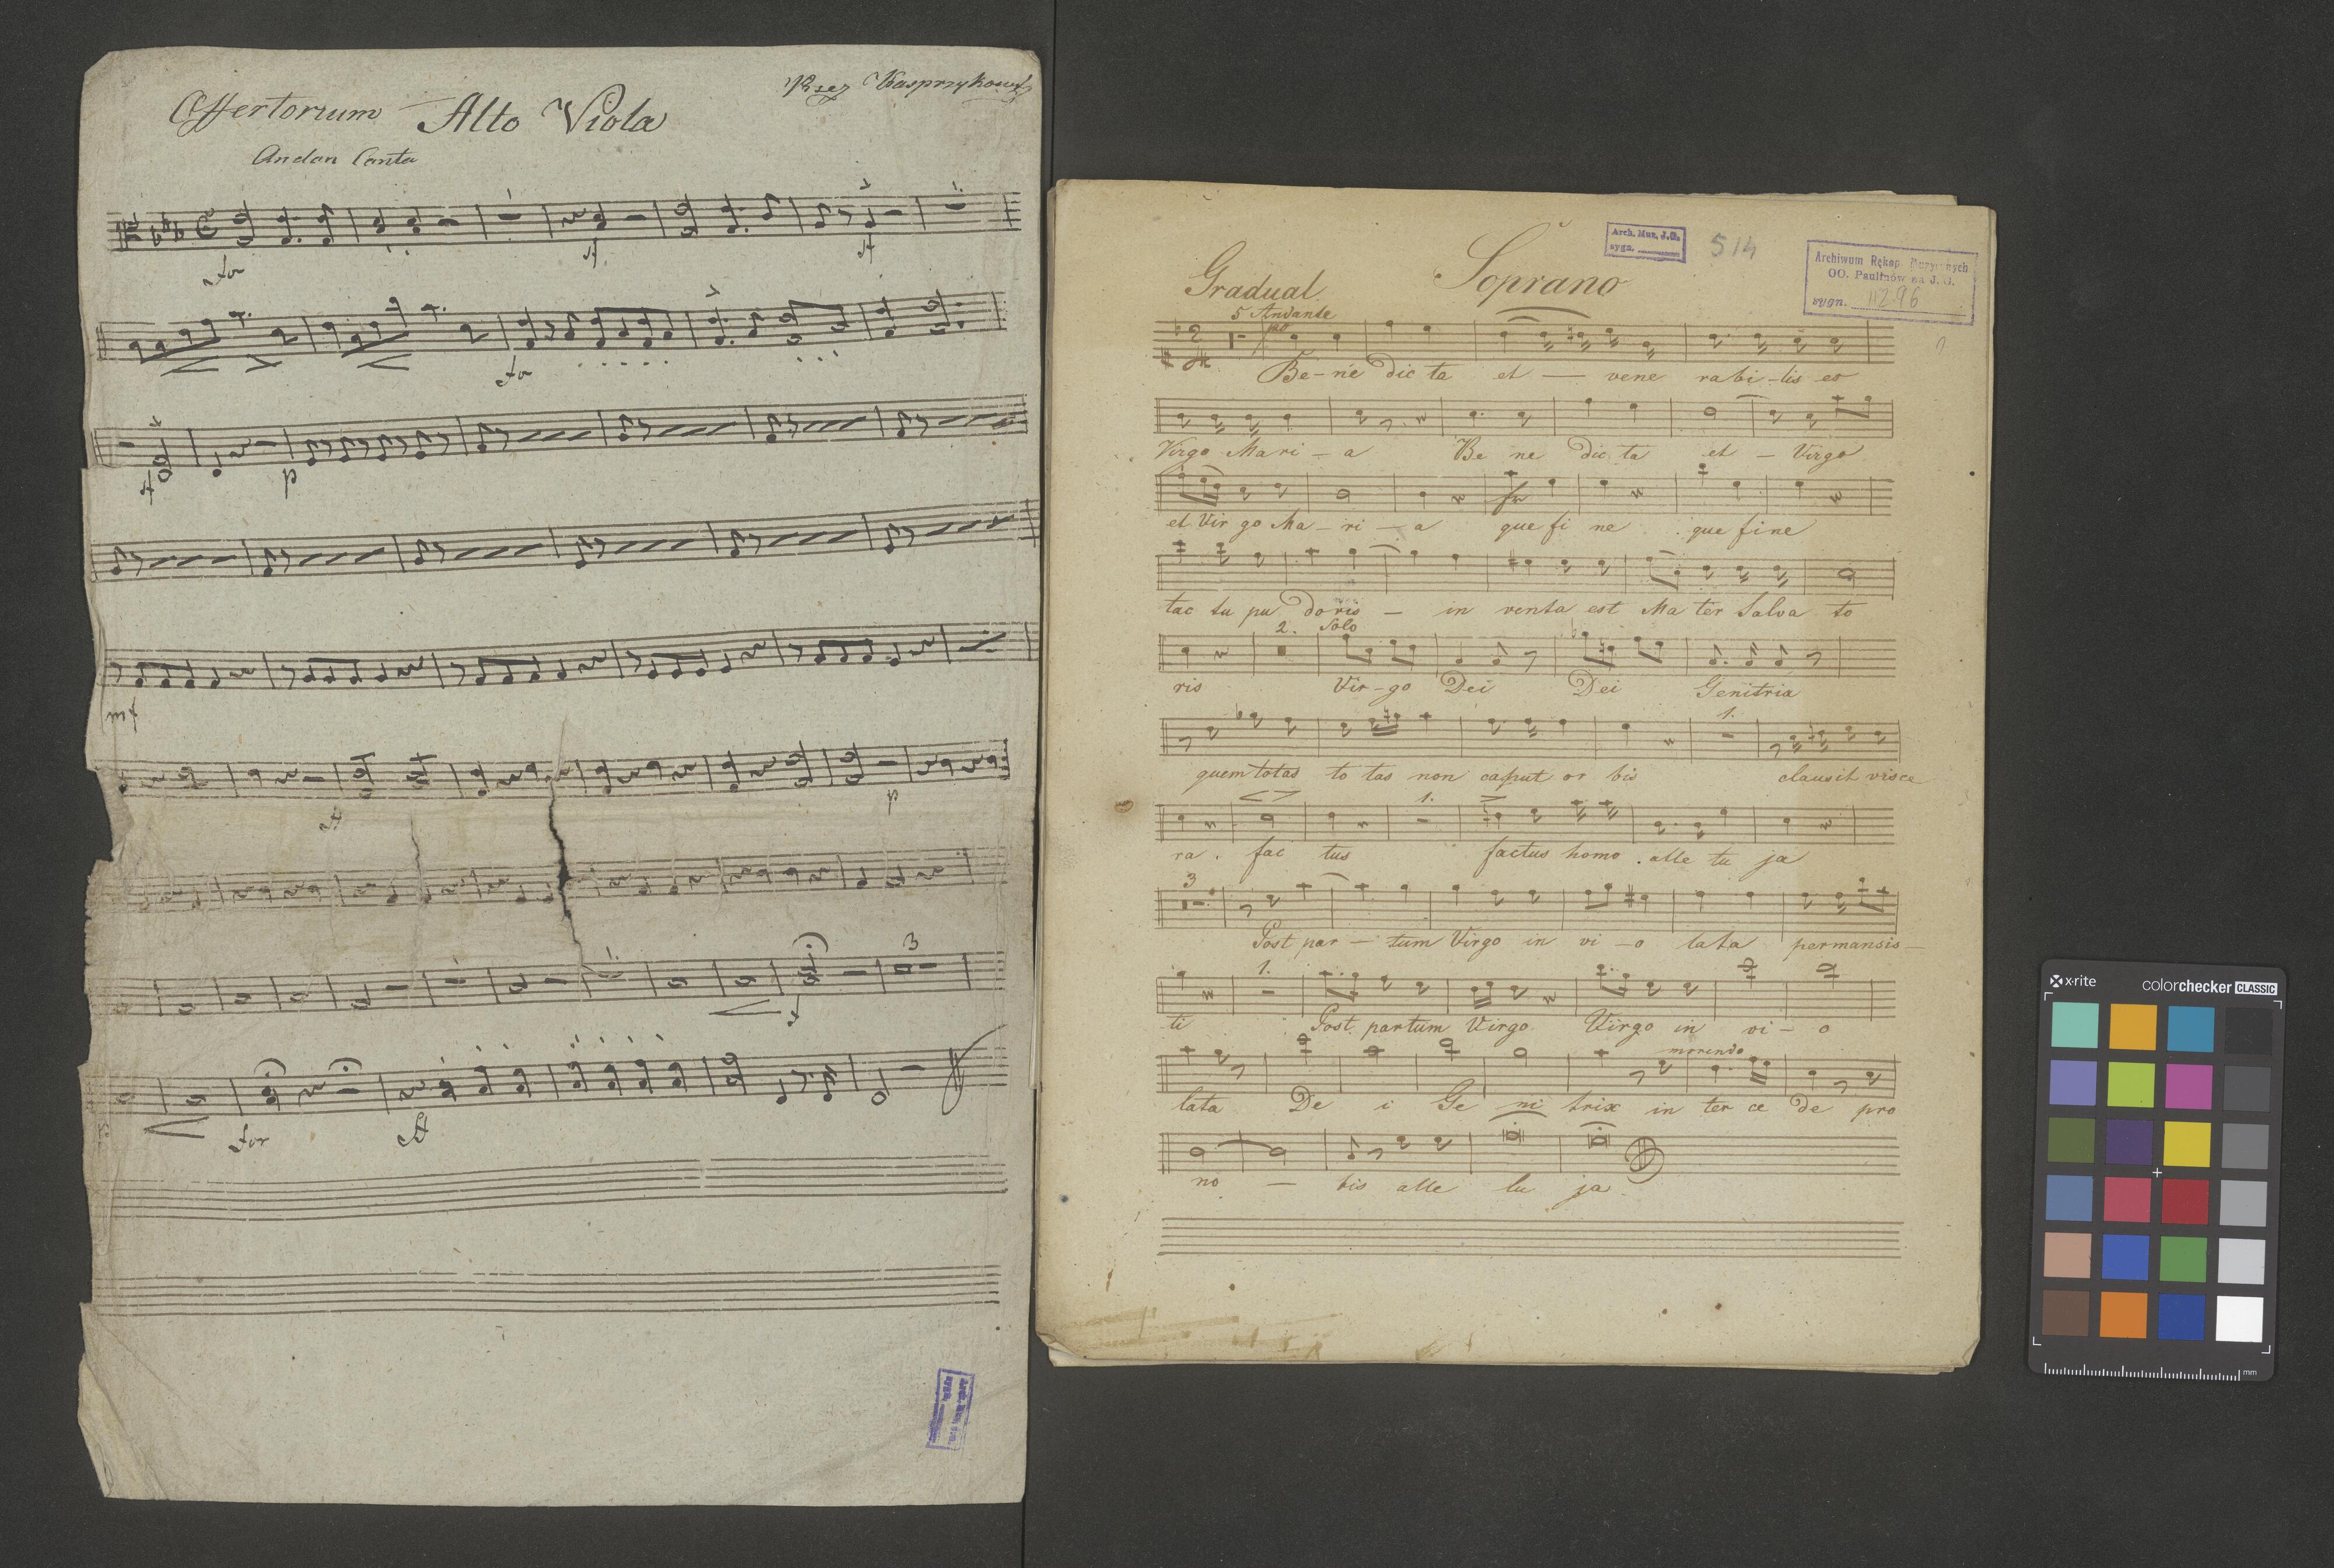 Offertorium Alto Viola
Przez Kasprzykows
Andan Canta
for
sf
sf
for
f
p
mf
f
p
f
3
for
ff
Arch. Muz. J.G.
sygn.
514
Archiwum Rękop. Muzycznych
OO. Paulinów na J. G.
sygn. 1296
Gradual Soprano
5 Andante
Be-ne dic ta et — vene rabi-lis es
Virgo Mari - a Be ne dic ta et - Virgo
et Vir go Ma-ri-a que fi ne que fine
tac tu pu doris - in venta est Ma ter Salva to
2. Solo
ris Vir-go Dei Dei Genitrix
1.
quem totas to tas non caput or bis clausit visce
1.
ra. fac tus factus homo. alle lu ja
3
Post par - tum Virgo in vi-o lata permansis-
1.
ti Post partum Virgo Virgo in vi-o
morendo
lata De i Ge ni trix in ter ce de pro
no - bis alle lu ja
x·rite colorchecker CLASSIC
mm